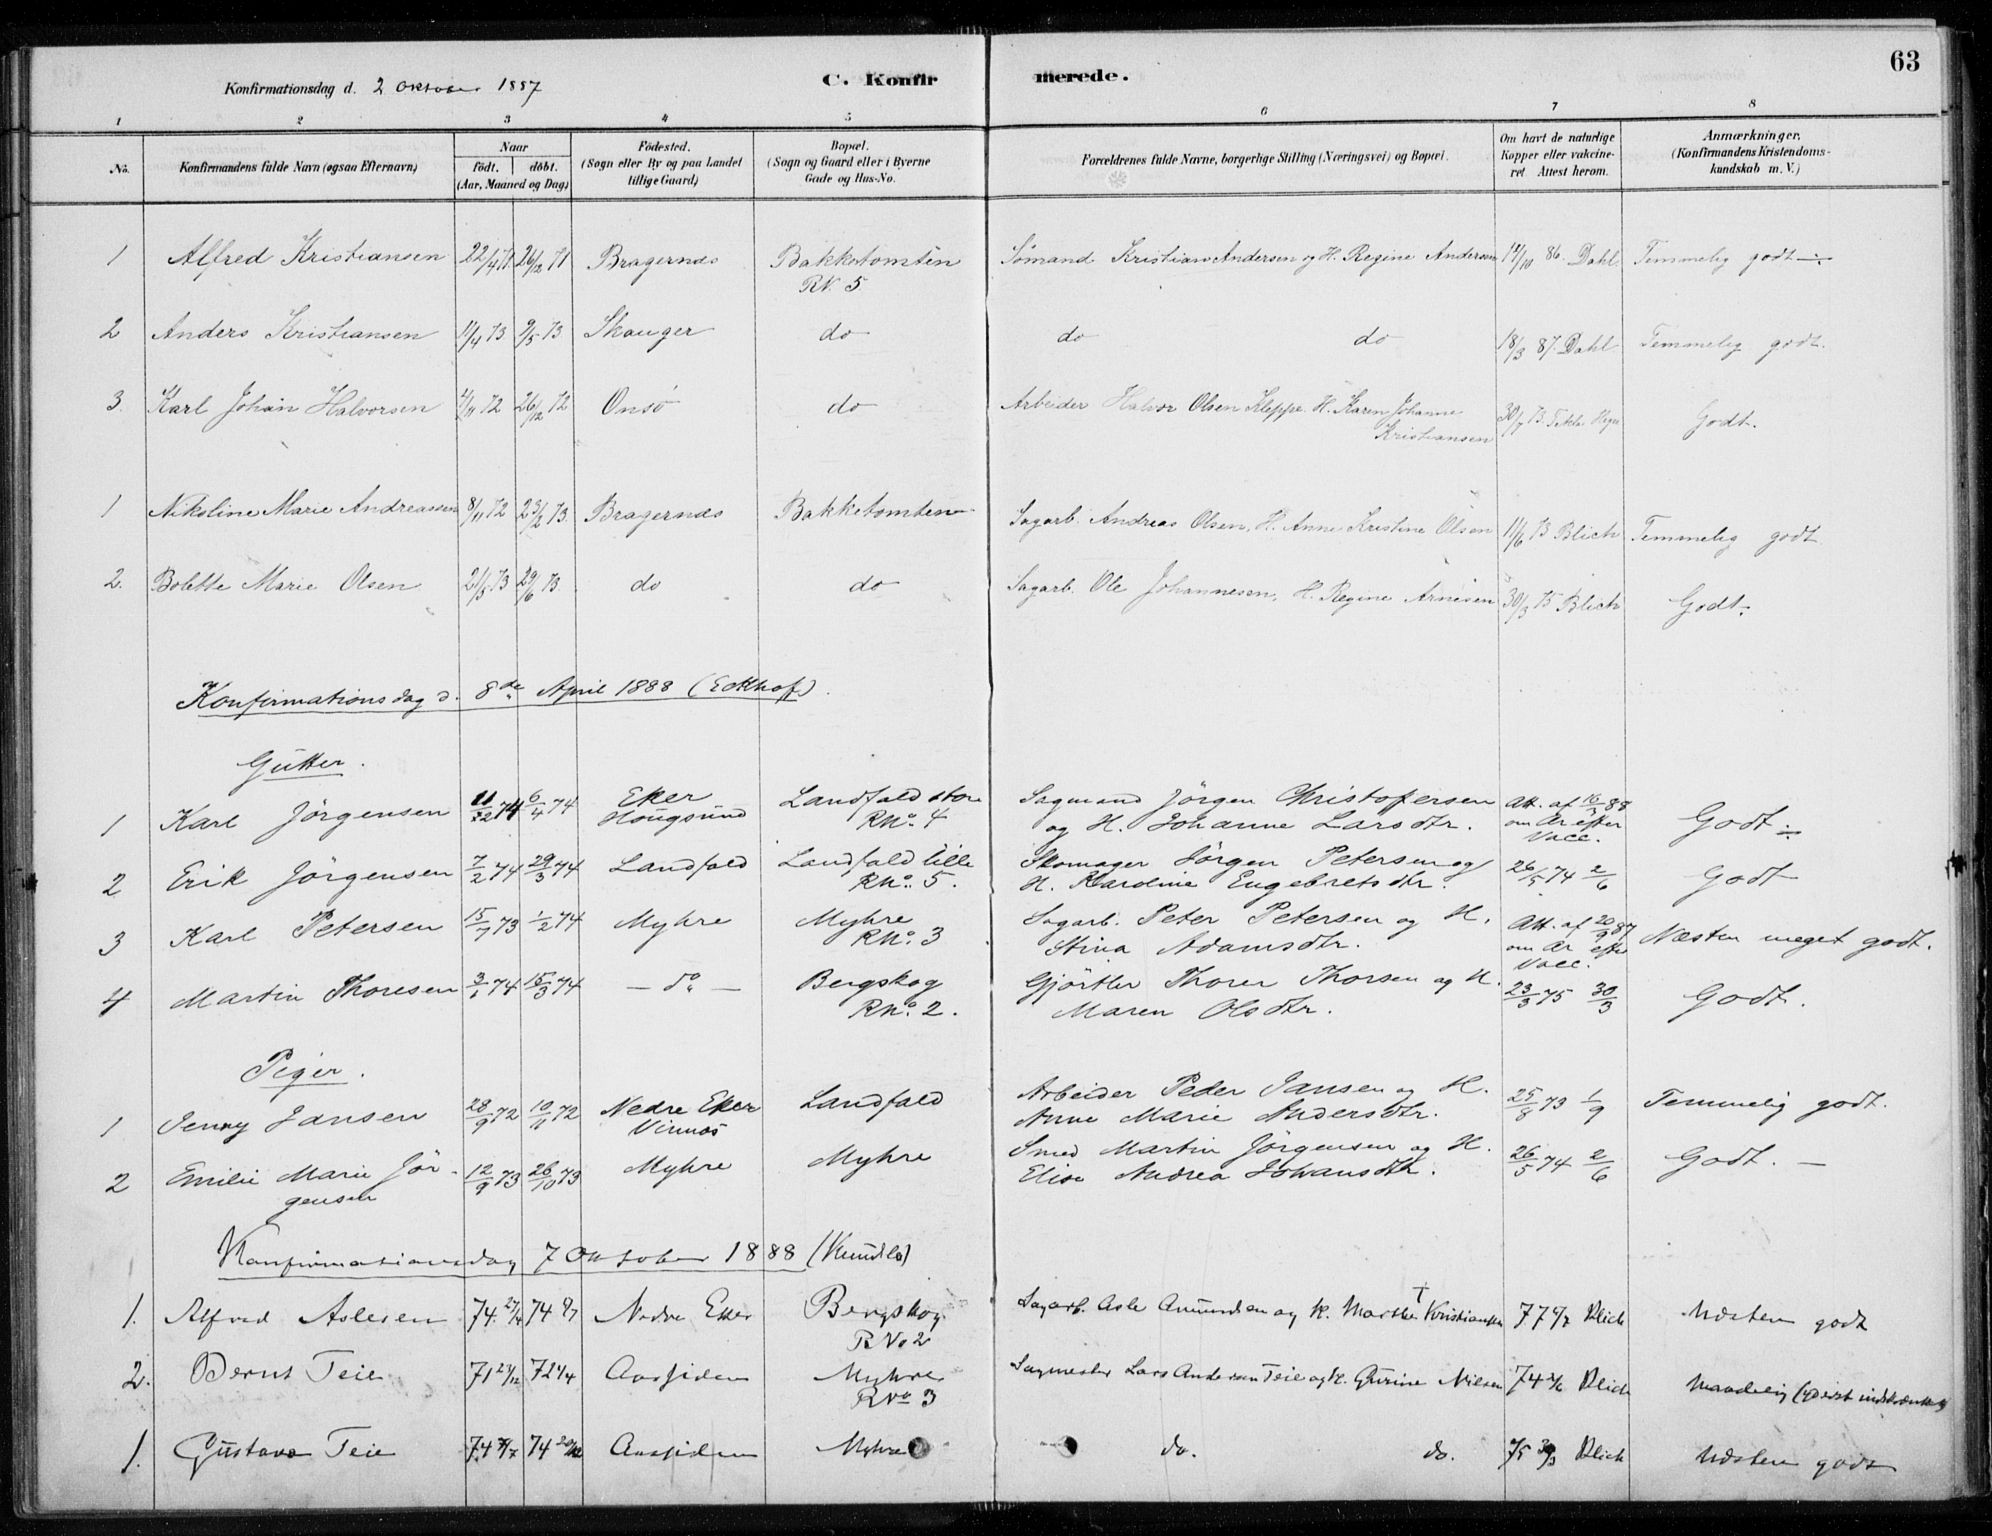 63
Konfirmationsdag d. 2 Oktober 1887
C. Konfirmerede.
1 2 3 4 5 6 7 8
No. Konfirmandens fulde Navn (ogsaa Efternavn) Naar födt. döbt. (Aar, Maaned og Dag) Födested. (Sogn eller By og paa Landet tillige Gaard) Bopæl. (Sogn og Gaard eller i Byerne Gade og Hus-No. Forældrenes fulde Navne, borgerlige Stilling (Næringsvei) og Bopæl. Om havt de naturlige Kopper eller vakcineret Attest herom. Anmærkninger. (Konfirmandens Kristendomskundskab m. V.)
1 Alfred Kristiansen 22/4 71 26/12 71 Bragernæs Bakketomten Sömand Kristian Andersen og H. Regine Andersen 86. Dahl Temmelig godt
RN. 5
2 Anders Kristiansen 11/4 73 9/5 73 Skauger do do do 18/3 87. Dahl Temmelig godt.
3. Karl Johan Halvorsen 4/11 72 26/12 72 Onsö do Arbeider Halvor Olsen Kleppe. H. Karen Johanne 30/7 73. Godt.
Kristiansen
1 Nikoline Marie Andreassen 8/11 72 23/2 73. Bragernæs Bakketomten Sagarb. Andreas Olsen, H. Anne Kristine Olsen 11/6 73 Blich Temmelig godt
2. Bolette Marie Olsen 2/5 73 29/6 73. do do Sagarb. Ole Johannesen, H. Regine Arnesen 30/3 75 Blich Godt.
Konfirmationsdag d. 8de April 1888 (Eckhof).
Gutter.
1 Karl Jörgensen 11/12 74 6/4 74 Eker Landfald store Sagmand Jörgen Christofersen Att. af 16/3 88 Godt
Hougsund RNo. 4 og H. Johanne Larsdtr. om Ar efter
Vacc.
2 Erik Jörgensen 7/2 74 29/3 74 Landfald Landfald lille Skomager Jörgen Petersen og 26/5 74 2/6 Godt
RNo. 5. H. Karoline Engebretsdtr.
3 Karl Petersen 15/7 73 1/2 74 Myhre Myhre Sagarb. Peter Petersen og H. Att. af 20/9 87 Næsten meget godt.
RNo. 3 Stina Adamsdtr. om Ar efter
Vacc.
4 Martin Thoresen 3/1 74 15/3 74 – do – Bergskog Gjörtler Thorer Thorsen og H. 23/3 75 30/3 Godt.
RNo. 2. Maren Olsdtr.
Piger.
1 Jenny Jansen 28/9 72 10/11 72 Nedre Eker Landfald Arbeider Peder Jansen og H. 25/8 73 1/9 Temmelig godt.
Anne Marie Andersdtr.
2 Emilie Marie Jör- 12/9 73 26/10 73 Myhre Myhre Smed Martin Jörgensen og H. 26/5 74 2/6 Godt. –
gensen Elise Andrea Johansdtr.
Konfirmationsdag 7 Oktober 1888
1. Alfred Aslesen 74 27/4 74 Nedre Eker Bergskog Sagarb. Asle Amundsen og H. Marthe † Kristiansen 77 Blich Næsten godt
RNo 2
2. Bernt Teie 71 72 Aassiden Myhre Sagmester Lars Andersen Teie og H. Gurine Nilsen 74 Blich Maadelig
RNo 3
1. Gustava Teie 74 74 Aassiden Myhre do. do. 75 Blich Næsten godt